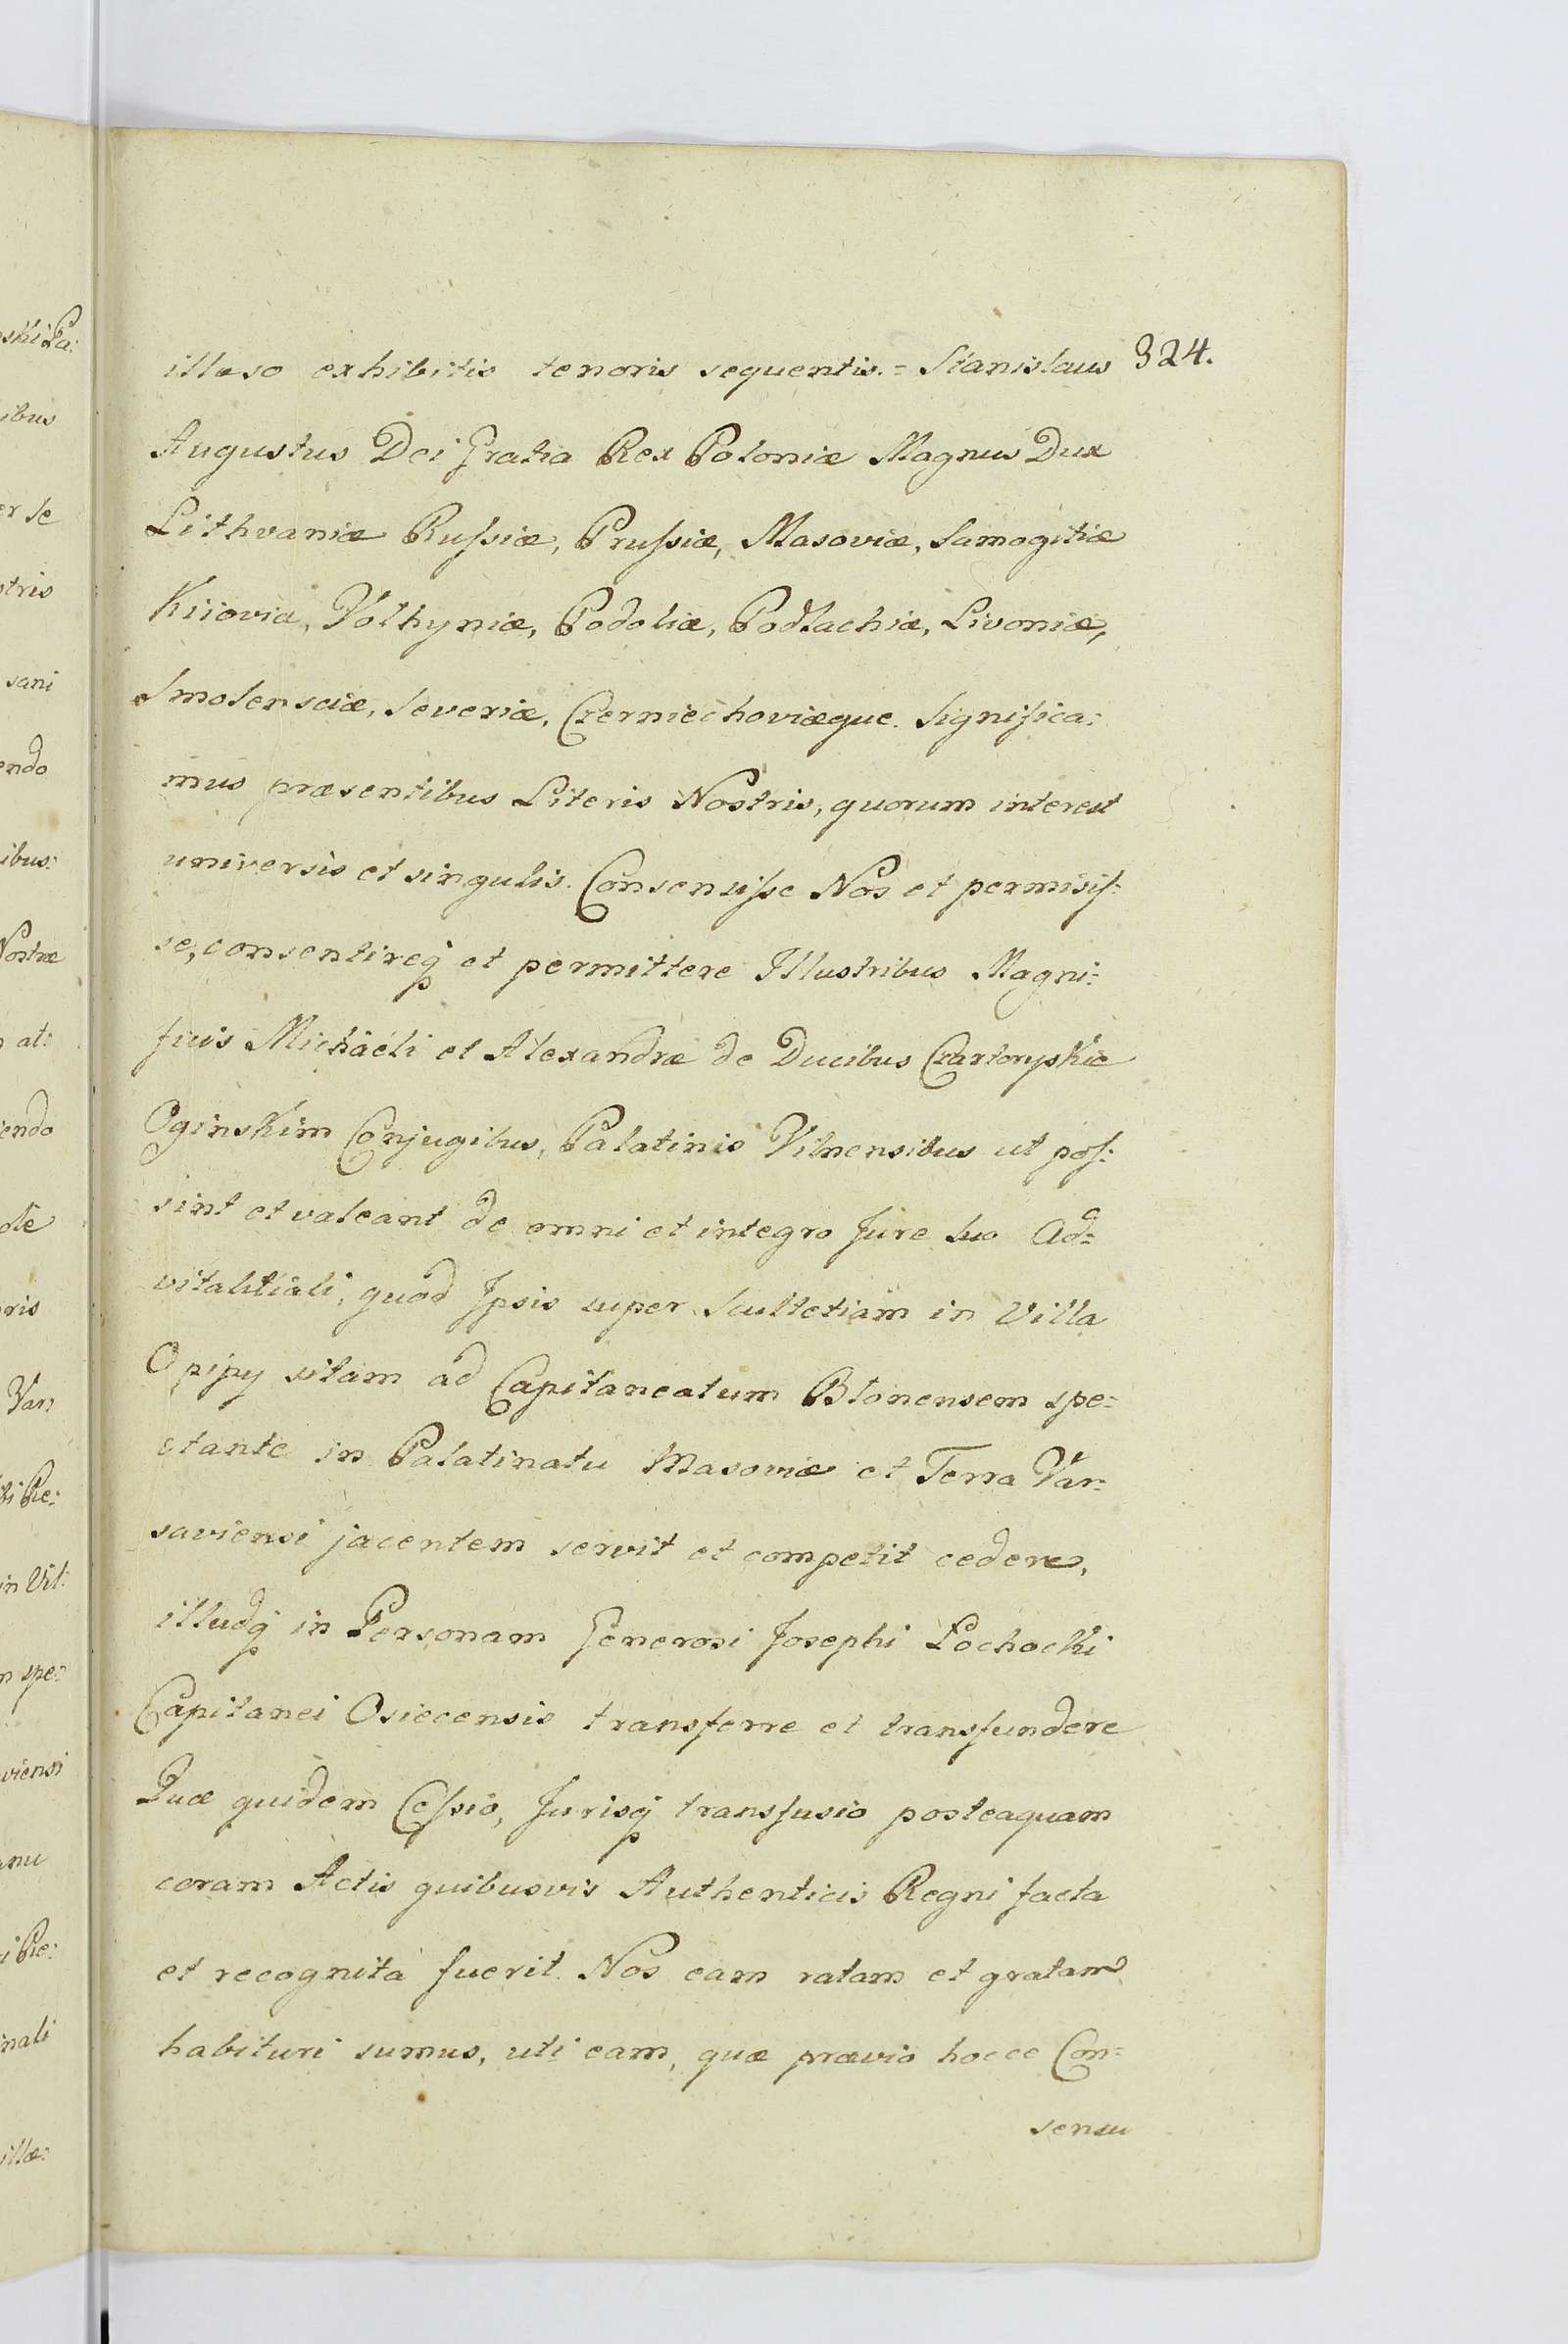 324.
illæso exhibitis tenoris sequentis.= Stanislaus
Augustus Dei Gratia Rex Poloniæ Magnus Dux
Lithvaniæ Rufsiæ, Prufsiæ, Masoviæ, Samogitiæ
Kiioviæ, Volhyniæ, Podoliæ, Podlachiæ, Livoniæ,
Smolensciæ, Severiæ, Czerniechoviæque. Significa:
mus præsentibus Literis Nostris, quorum interest
universis et singulis. Consensifse Nos et permisif:
se, consentireq́ et permittere Illustribus Magni:
ficis Michaëli et Alexandræ de Ducibus Czartoryskie
Oginskim Conjugibus, Palatinis Vilnensibus ut pof:
sint et valeant de omni et integro Jure suo Ad:
vitalitiali, quod Ipsis super Scultetiam in Villa
Opipy sitam ad Capitaneatum Blonensem spe:
ctante in Palatinatu Masoviæ et Terra Var:
saviensi jacentem servit et competit cedere,
illudq́ in Personam Generosi Josephi Lochocki
Capitanei Osiecensis transferre et transfundere
Quæ quidem Cefsio, Jurisq́ transfusio posteaquam
coram Actis quibusvis Authenticis Regni facta
et recognita fuerit. Nos eam ratam et gratam
habituri sumus, uti eam, quæ prævio hocce Con:
sensu
ibus
er se
stris
sani
endo
ibus:
Nostræ
at:
iendo
oris
Var
in Vil:
n spe:
viensi
anu
nali
illæ: